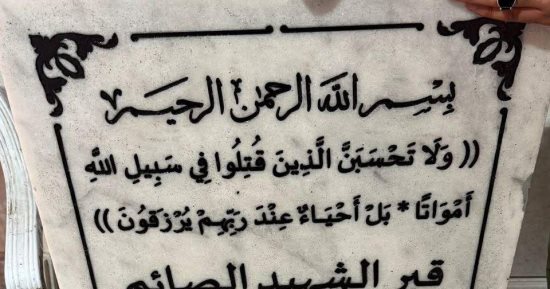 بِسْمِ اللهِ الرحمن الرحيم
(( وَلَا تَحْسَبَنَّ الَّذِينَ قُتِلُوا فِي سَبِيلِ اللَّهِ
أَمْوَاتًا * بَلْ أَحْيَاءٌ عِنْدَ رَبِّهِمْ يُرْزَقُونَ ))
قبر الشهيد الصائم